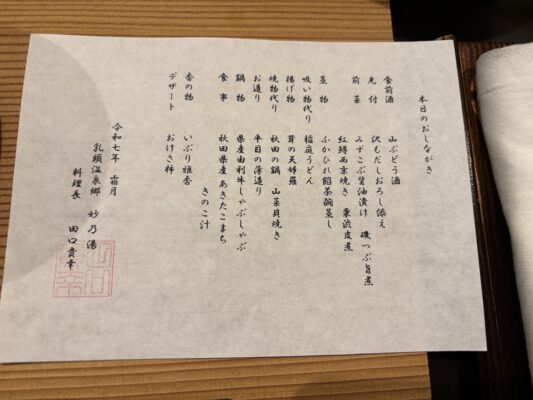 本日のおしながき
食前酒　山ぶどう酒
先付　沢もだしおろし添え
前菜　みずこぶ醤油漬け　磯つぶ旨煮
紅鱒西京焼き　栗渋皮煮
蒸物　ふかひれ餡茶碗蒸し
吸い物代り　稲庭うどん
揚げ物　茸の天婦羅
焼物代り　秋田の鍋　山菜貝焼き
お造り　平目の薄造り
鍋物　県産由利牛しゃぶしゃぶ
食事　秋田県産あきたこまち
きのこ汁
香の物　いぶり雅香
デザート　おけさ柿
令和七年　霜月
乳頭温泉郷　妙乃湯
料理長　田口貴幸